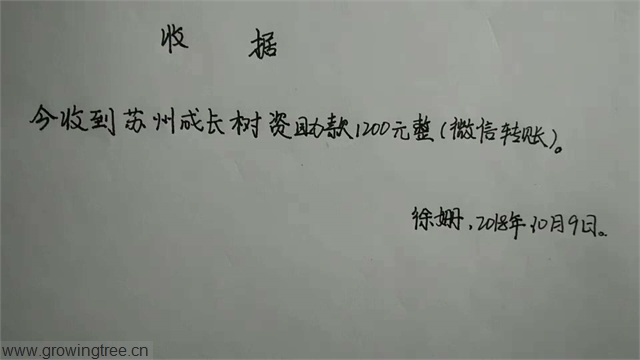 收 据
今收到苏州成长树资助款1200元整(微信转账)。
徐姗,2018年10月9日。
www.growingtree.cn